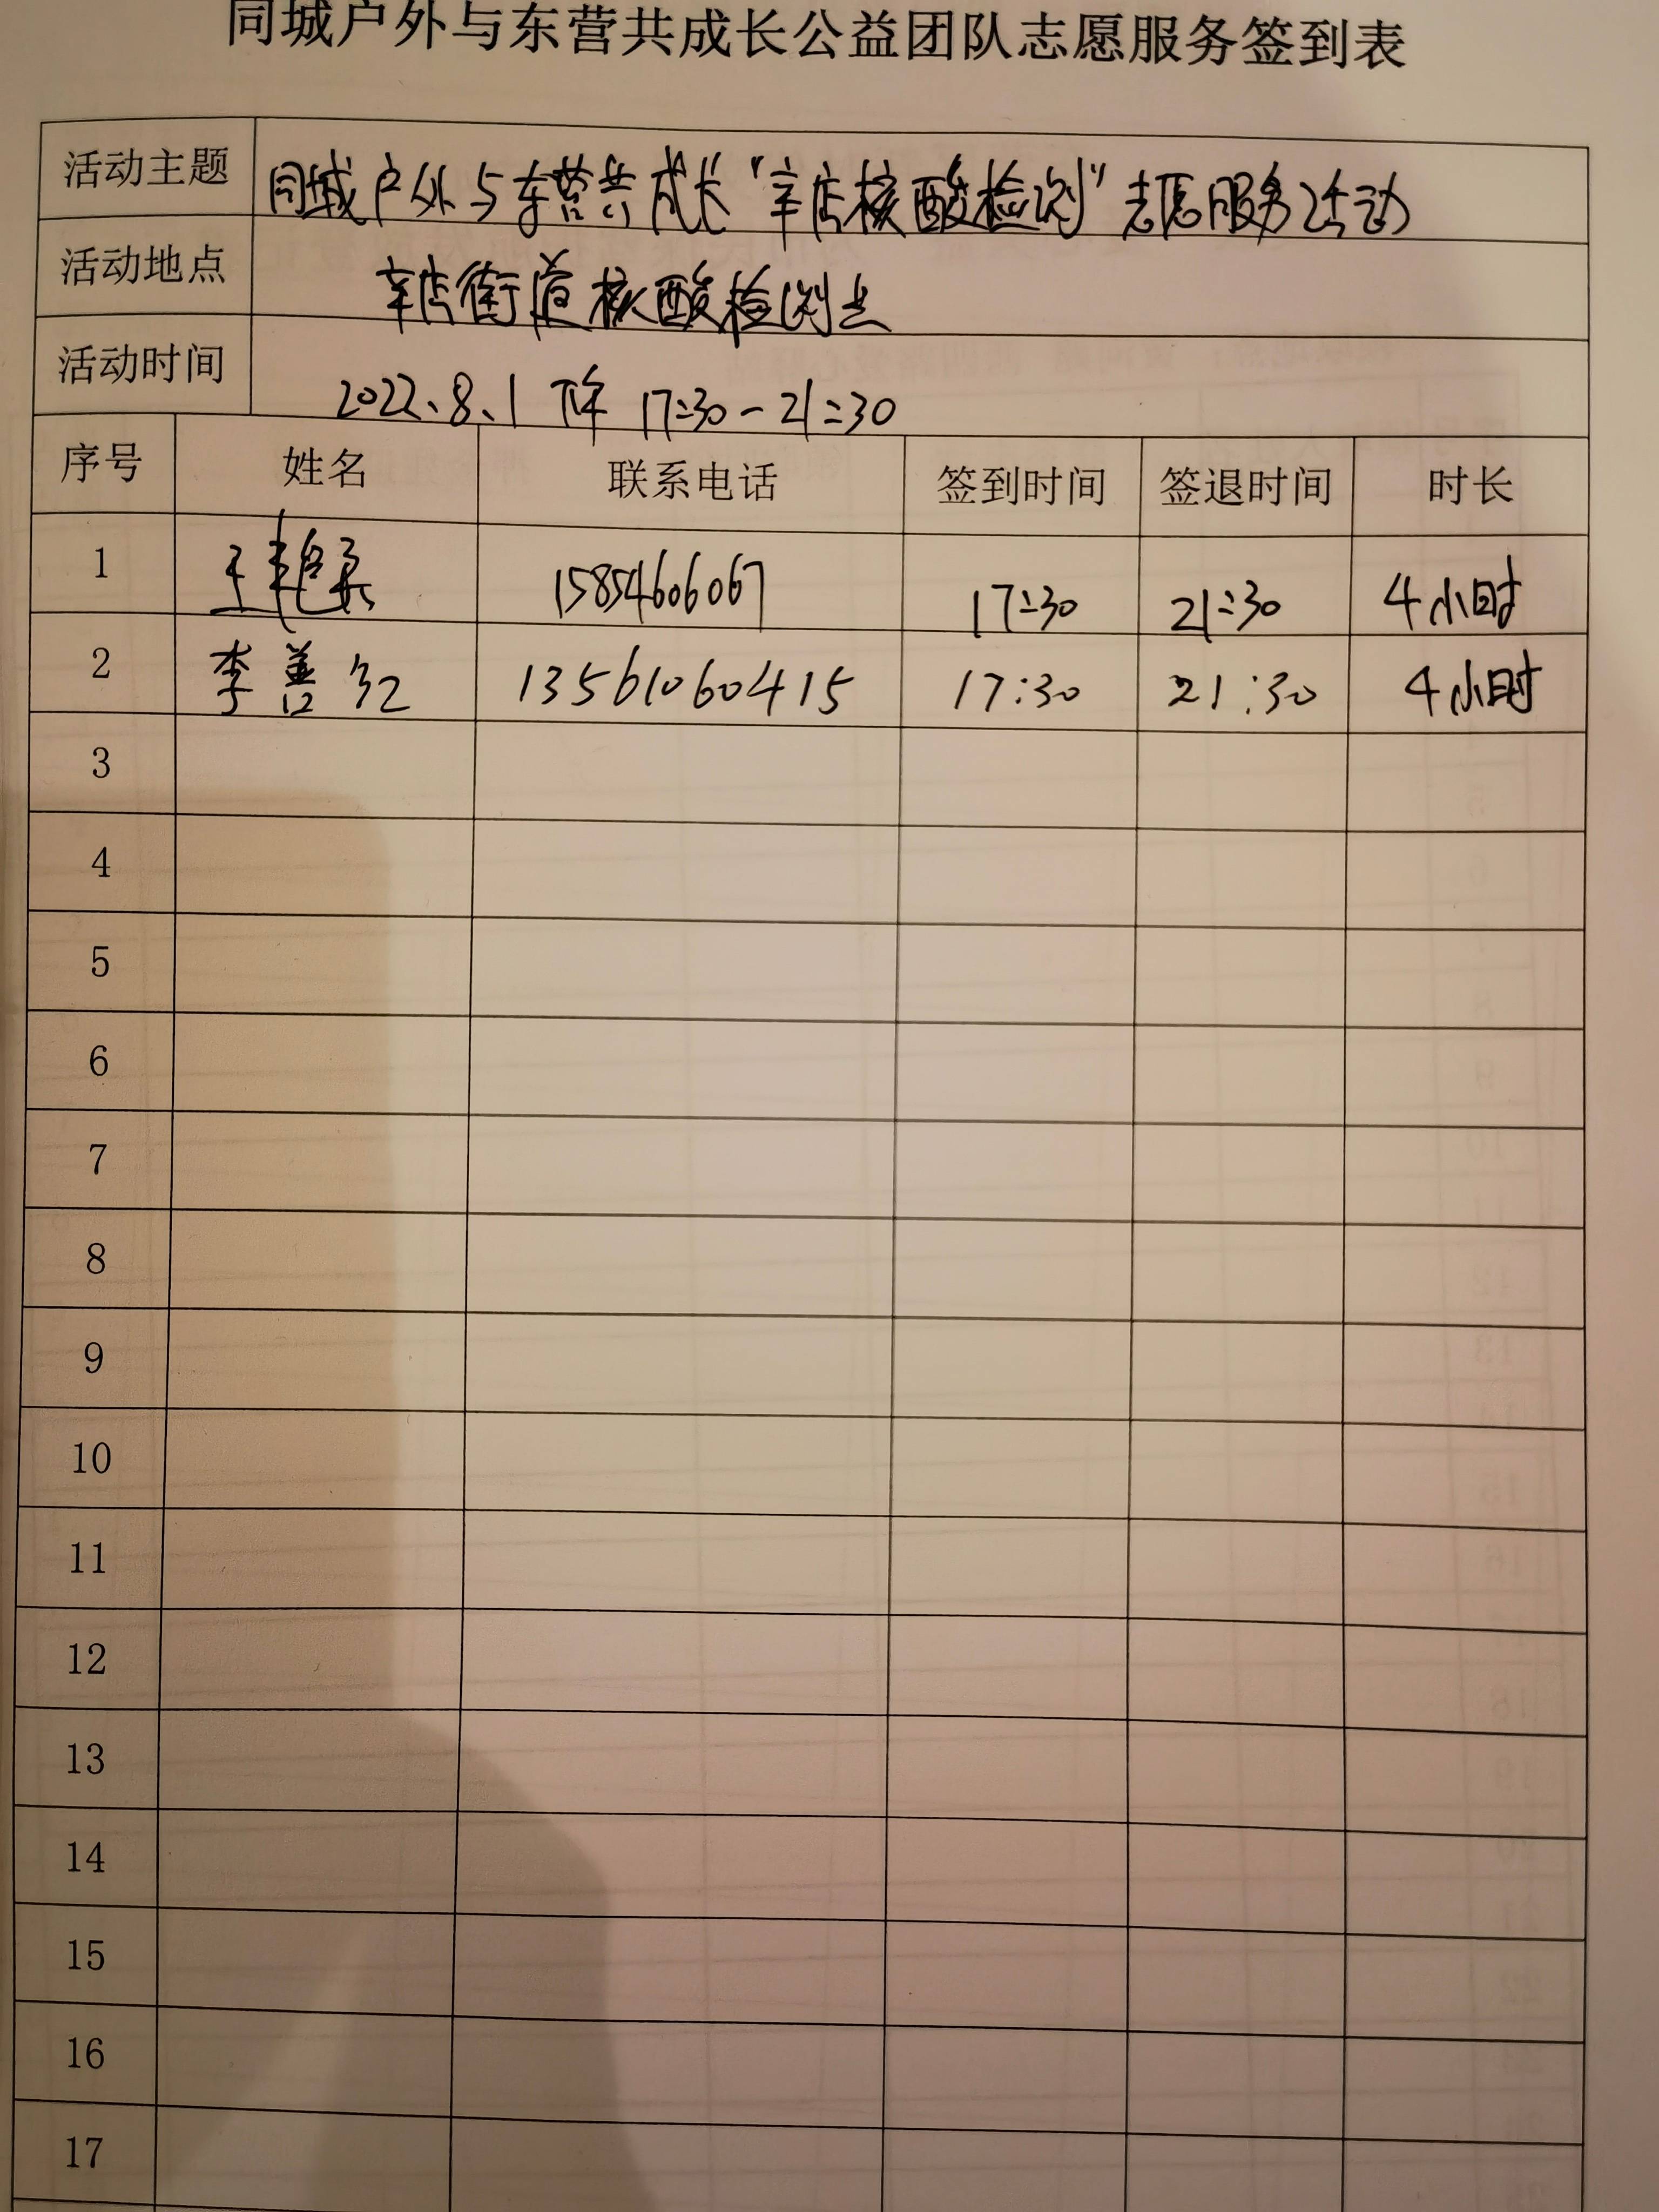 同城户外与东营共成长公益团队志愿服务签到表
活动主题 同城户外与东营共成长“辛店核酸检测”志愿服务活动
活动地点 辛店街道核酸检测点
活动时间 2022、8、1 下午 17:30-21:30
序号 姓名 联系电话 签到时间 签退时间 时长
1 王 15854606067 17:30 21:30 4小时
2 李善红 13561060415 17:30 21:30 4小时
3
4
5
6
7
8
9
10
11
12
13
14
15
16
17